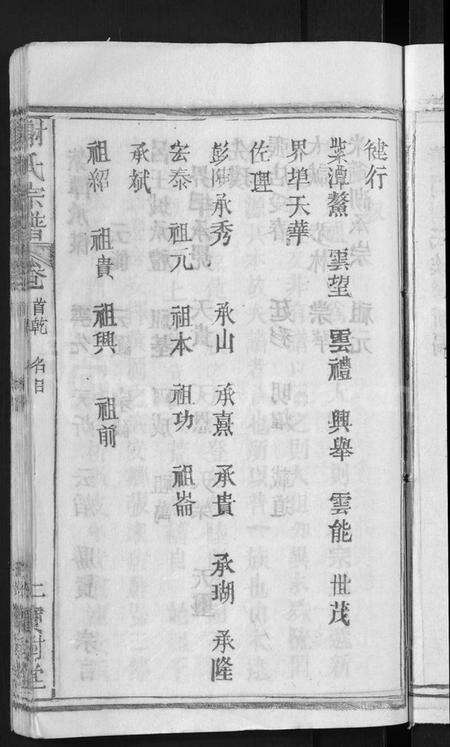 健行
紫潭鰲 雲望 雲禮 興舉 雲能 世茂
界埠天華
佐理
彭陂承秀 承山 承熹 承貴 承瑚 承隆
宏泰 祖元 祖本 祖功 祖崙
承斌
祖紹 祖貴 祖興 祖前
謝氏宗譜 卷首乾 名目 寶樹堂